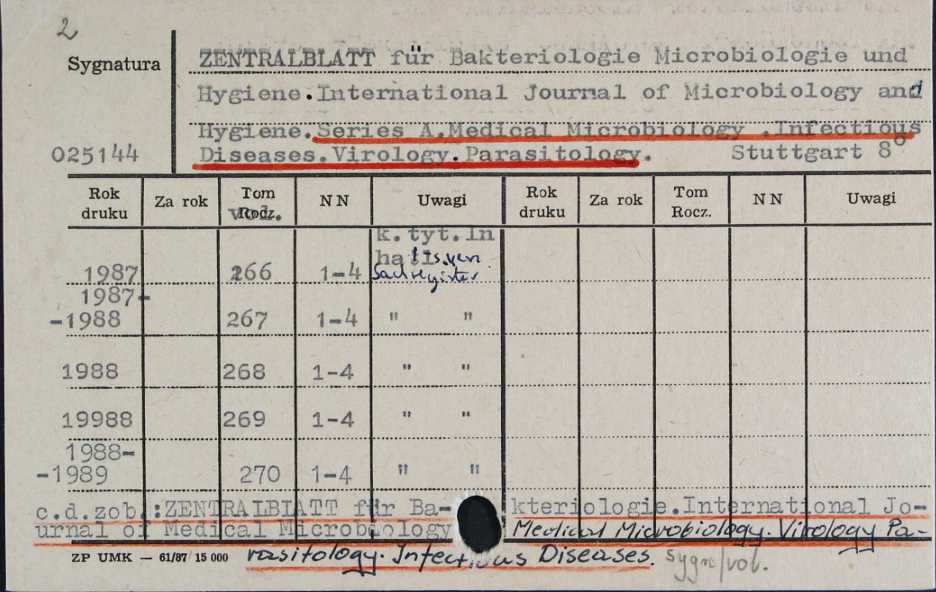 2
Sygnatura
ZENTRALBLATT für Bakteriologie Microbiologie und
Hygiene.International Journal of Microbiology and
Hygiene.Series A.Medical Microbiology .Infectious
025144
Diseases.Virology.Parasitology. Stuttgart 8°
Rok druku Za rok Tom Rocz. vol. NN Uwagi Rok druku Za rok Tom Rocz. NN Uwagi
k.tyt.In
1987 266 1-4
Sachregister
1987-
-1988 267 1-4 " "
1988 268 1-4 " "
19988 269 1-4 " "
1988-
-1989 270 1-4 " "
c.d.zob.:ZENTRALBLATT für Ba- kteriologie.International Jo-
urnal of Medical Microbiology Medical Microbiology. Virology Pa-
ZP UMK — 61/87 15 000 rasitology. Infectious Diseases. sygn/vol.